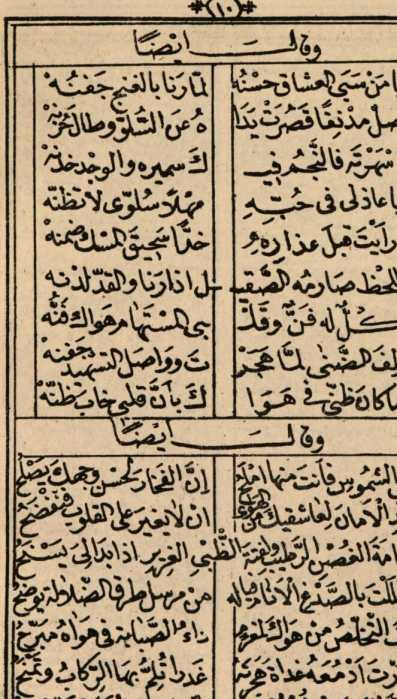 (١٠)
وقال ايضًا
يامَن سَبَى العشاق حسْنُهُ لمّا رَنا بالغنج جَفنُهُ
صل مدْنِفًا قصُرَتْ يَدَا هُ عَن السُّلوّ وطال حُزنُهُ
فالنَّجمُ في كَ سميره والوجد خدْنُهُ
ياعاذلى فى حُبّهِ مهْلًا سُلوّى لاتظنّه
رأيتَ قبلَ عذارِهِ خدًّا سَحِيق المسْك ضمنُهُ
اللحظ صارمُه الصَّقيـ ـل اذا رَنا والقدّ لدْنه
كُلٌّ له فَنٌّ وقلـ ـبى المستهام هواك فنُّه
الضَّنى لمّا هَجَرْ تَ وواصَل التسْهيدَ جَفنهُ
ماكان ظنّى في هَوَا كَ بأنّ قلبي خابَ ظنّهْ
وقال ايضًا
الشموس فأنت منها املَح إنَّ الفخَار لحسْن وجهك يَصْلحُ
الأمَان لعَاشقيك من الهوى ان لايغيرَ على القلوب فتفضَحُ
الغصْن الرّطيب ولفتة الظَّبْي الغرير اذا بدا لى يَسْنَحُ
بالصّدْغ الأنام وياله من مرسل طرق الضّلالة يوضحُ
التخلّصُ من هواك لمغرم داءُ الصّبابة في هواهُ مبرّحُ
مَعهُ غداة هجرتَهُ